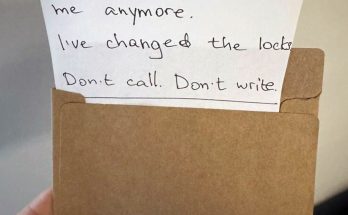 me anymore.
I've changed the locks
Don't call. Don't write.